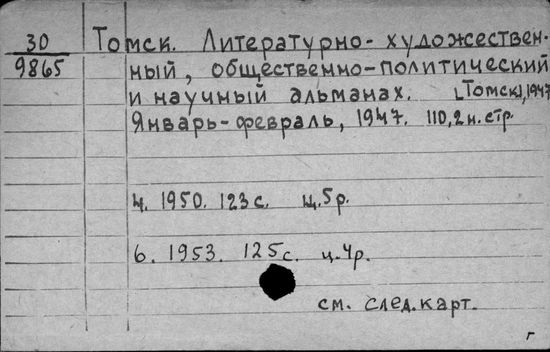 30 Томск. Литературно-художествен-
9865 ный, общественно-политический
и научный альманах. [Томск], 1947
Январь-февраль, 1947. 110,2 н. стр.
4. 1950. 123 с. ц. 5 р.
6. 1953. 125 с. ц. 4 р.
см. след. карт.
г